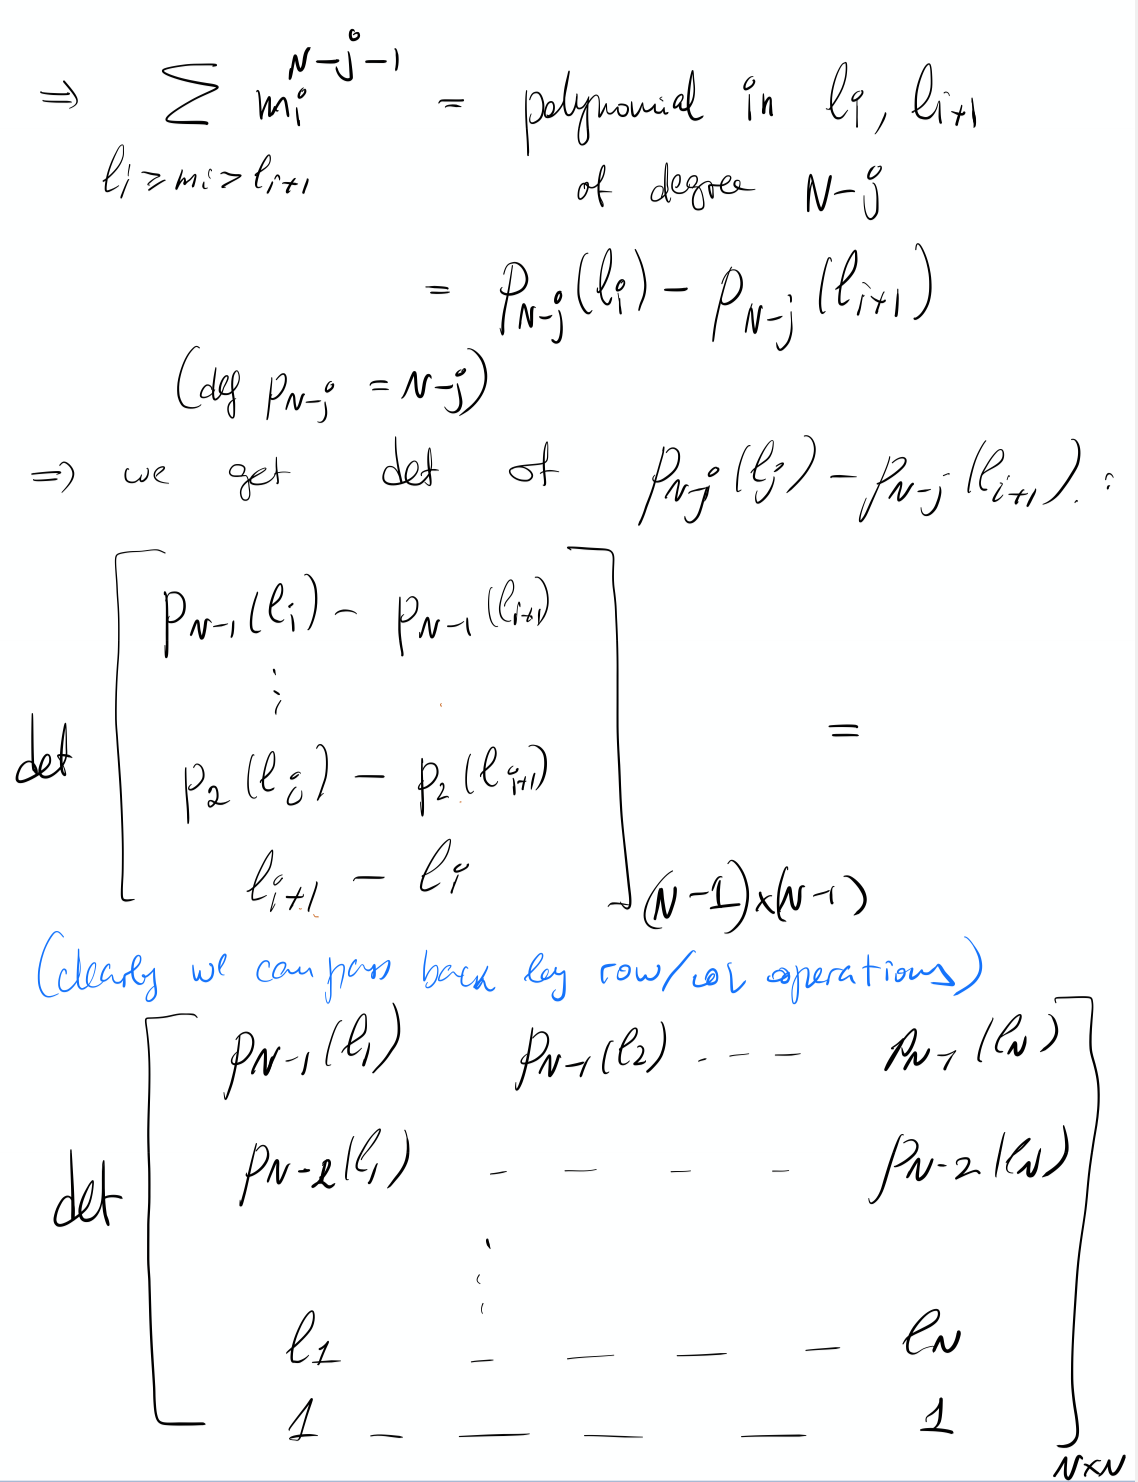 ⇒ ∑_{l_i ≥ m_i > l_{i+1}} m_i^{N-j-1} = polynomial in l_i, l_{i+1}
of degree N-j
= p_{N-j}(l_i) - p_{N-j}(l_{i+1})
(deg p_{N-j} = N-j)
⇒ we get det of p_{N-j}(l_j) - p_{N-j}(l_{i+1}). :
det [ p_{N-1}(l_i) - p_{N-1}(l_{i+1})
⋮
p_2(l_i) - p_2(l_{i+1})
l_{i+1} - l_i ]_{(N-1)×(N-1)} =
(clearly we can pass back by row/col operations)
det [ p_{N-1}(l_1) p_{N-1}(l_2) - - - p_{N-1}(l_N)
p_{N-2}(l_1) - - - - p_{N-2}(l_N)
⋮
l_1 - - - - l_N
1 - - - - 1 ]_{N×N}